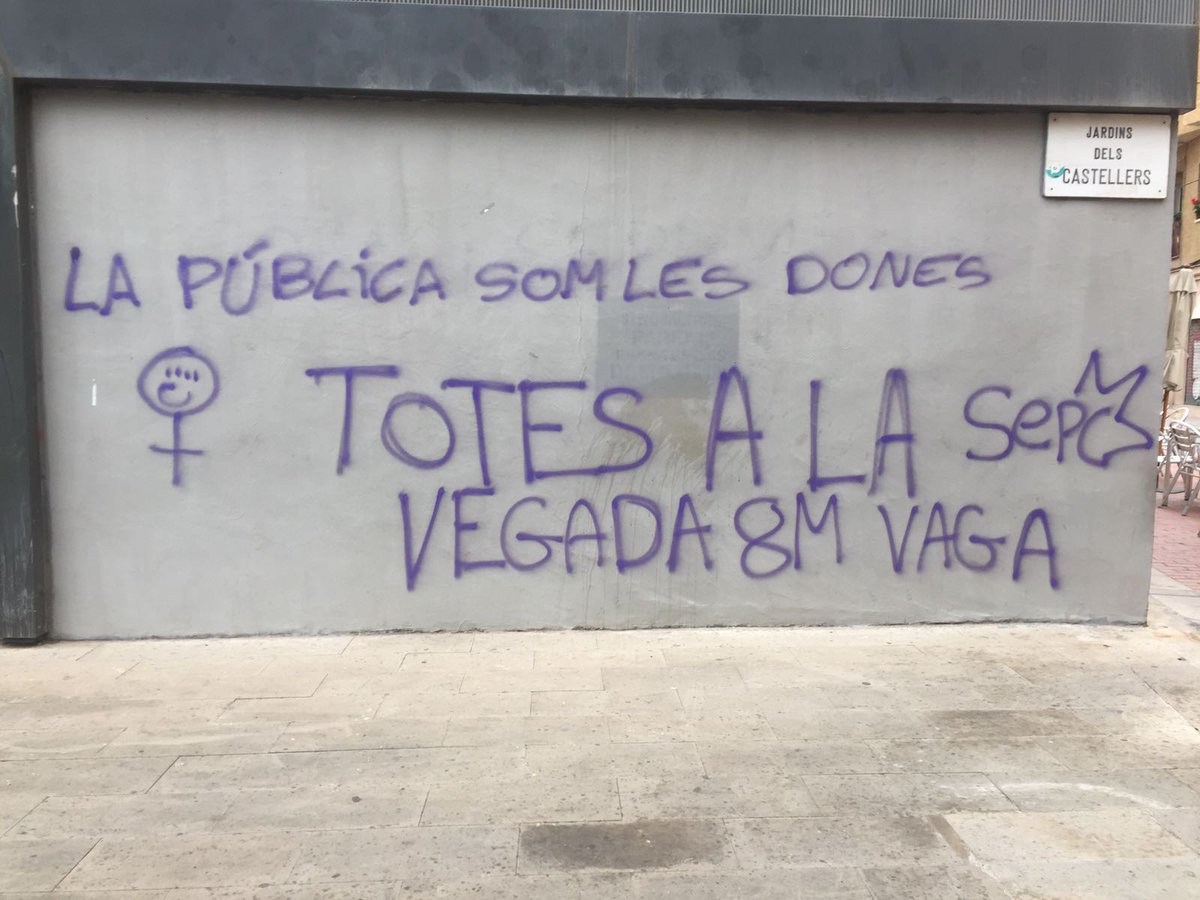 JARDINS
DELS
CASTELLERS
LA PÚBLICA SOM LES DONES
TOTES A LA SEPC
VEGADA 8M VAGA